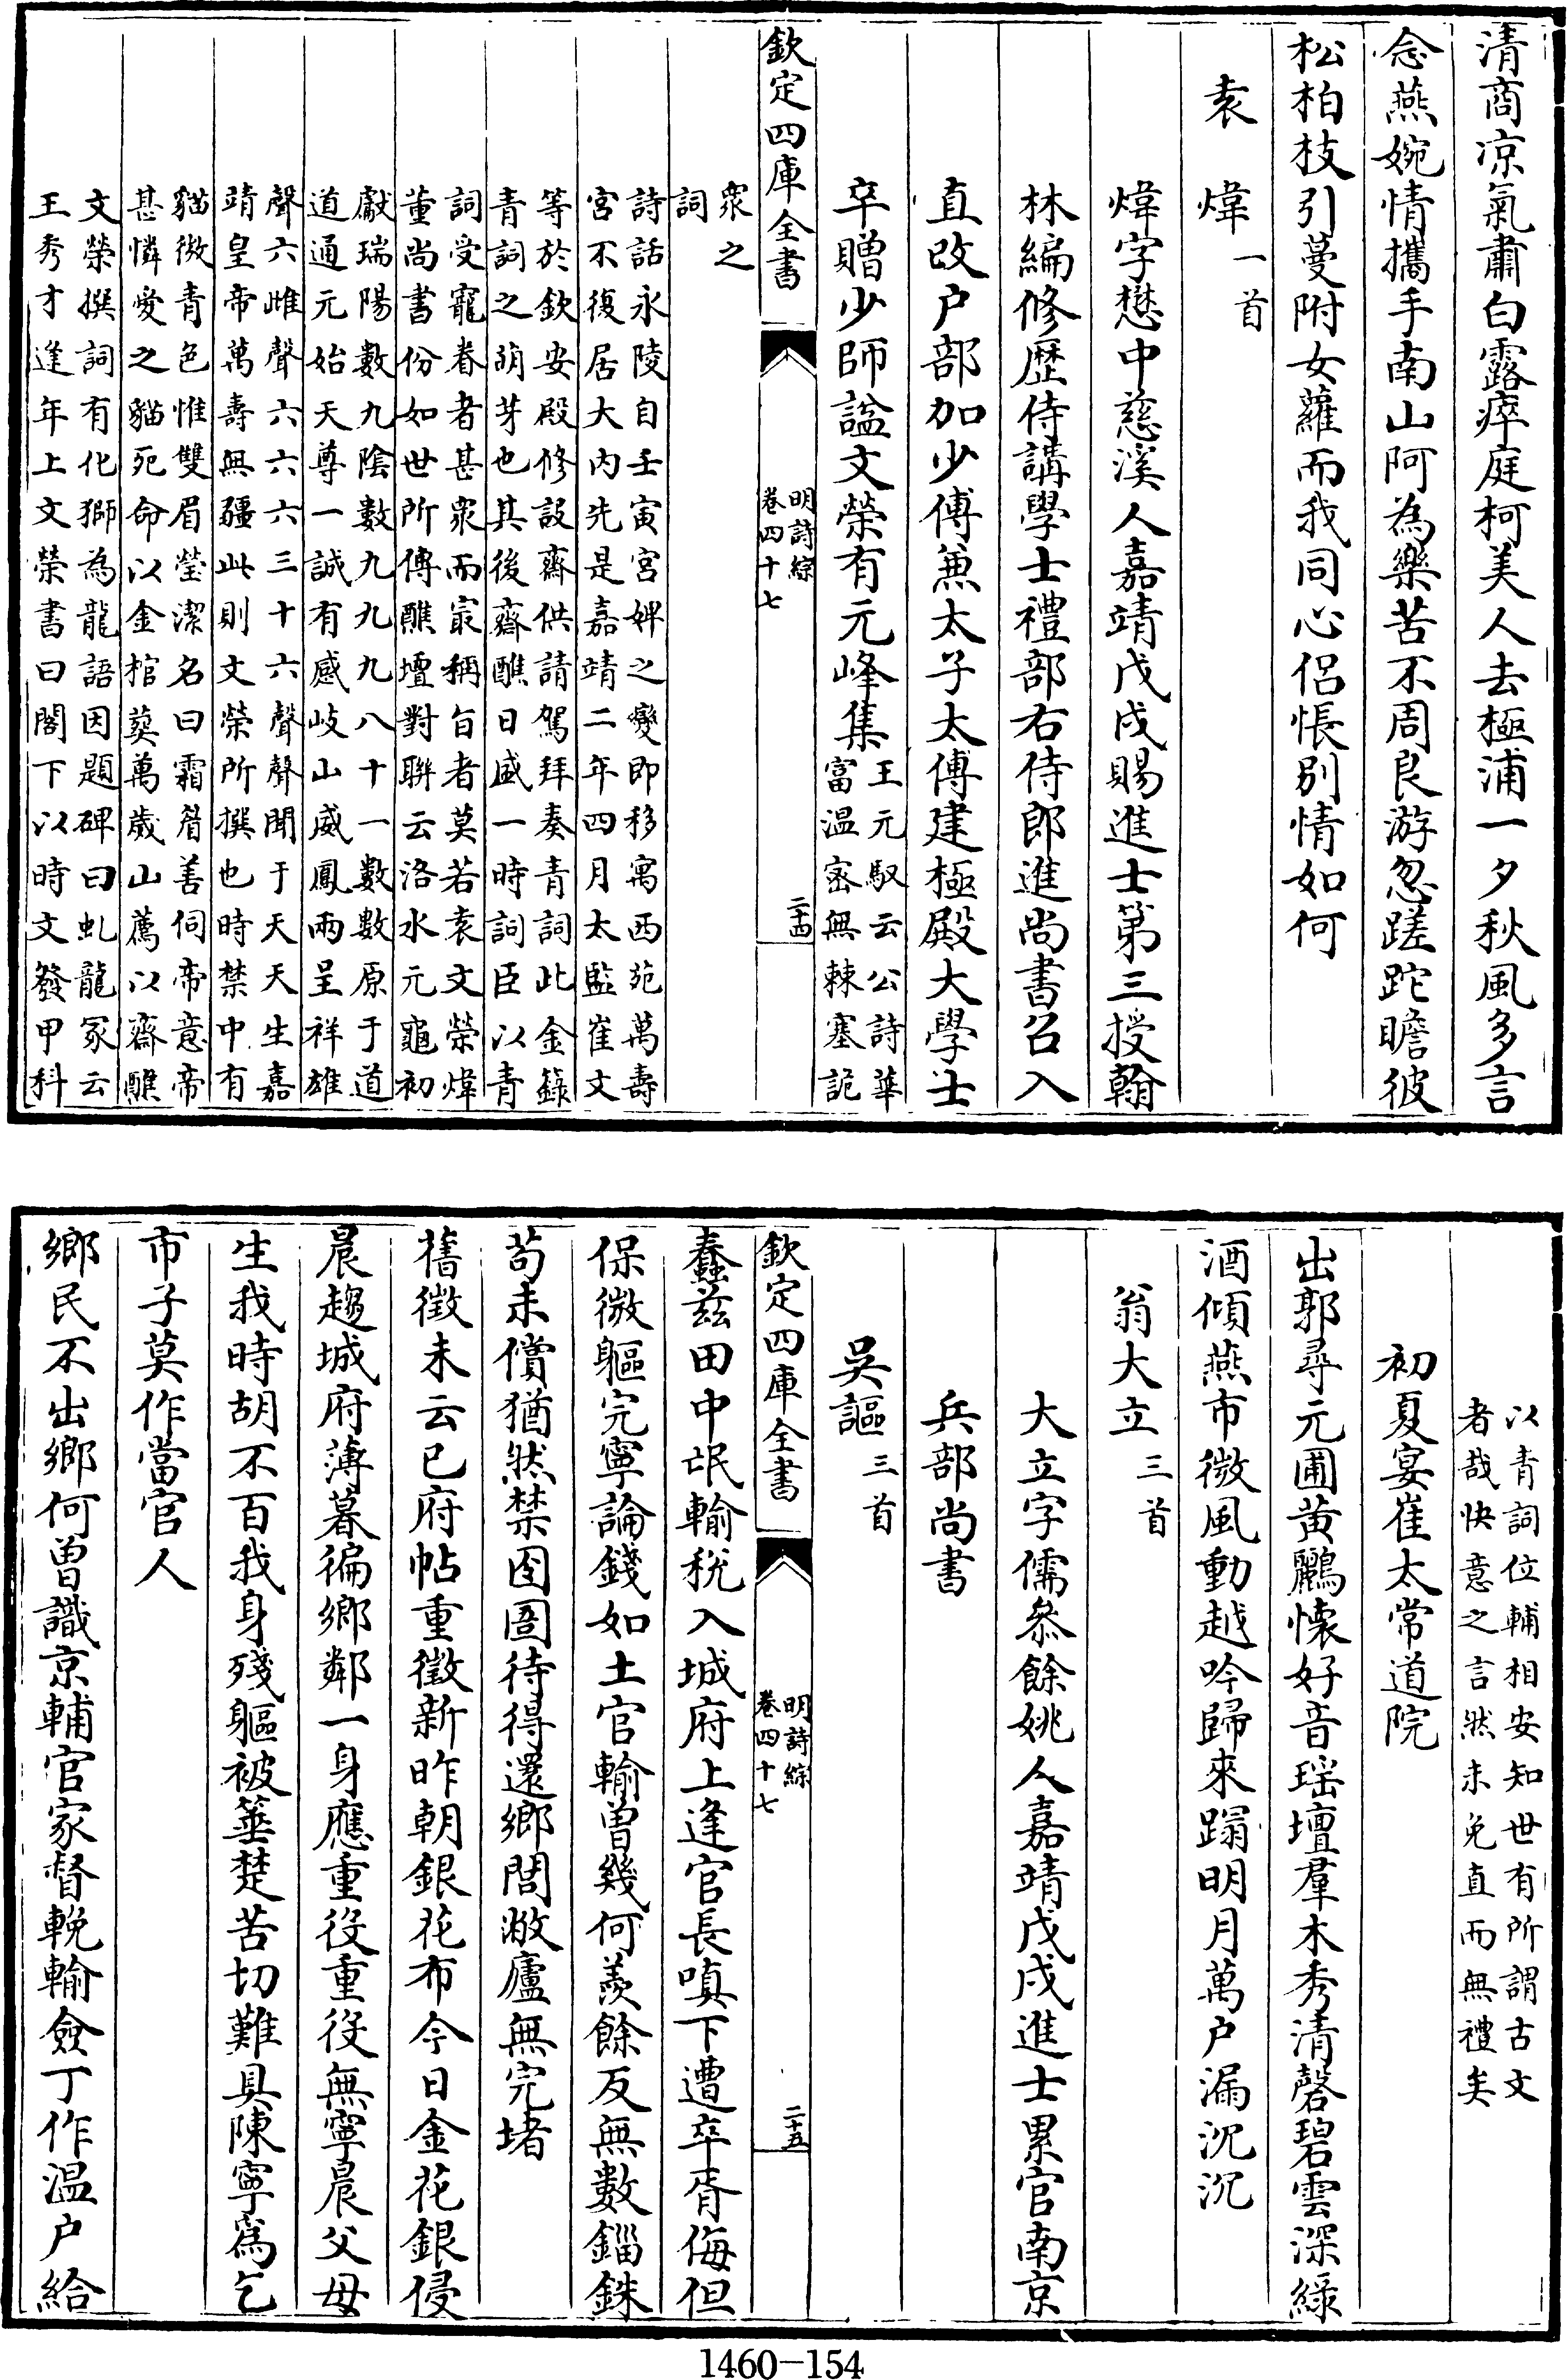 清商凉氣肅白露瘁庭柯美人去極浦一夕秋風多言
念燕婉情攜手南山阿為樂苦不周良游忽蹉跎瞻彼
松柏枝引蔓附女蘿而我同心侶悵别情如何
袁煒一首
煒字懋中慈溪人嘉靖戊戌賜進士第三授翰
林編修歷侍講學士禮部右侍郎進尚書召入
直改户部加少傅兼太子太傅建極殿大學士
卒贈少師諡文榮有元峰集
王元馭云公詩華
富温宻無棘塞詭
欽定四庫全書
明詩綜
卷四十七
二十四
衆之
詞
詩話永陵自壬寅宮婢之變即移寓西苑萬壽
宮不復居大内先是嘉靖二年四月太監崔文
等於欽安殿修設齋供請駕拜奏青詞此金籙
青詞之萌芽也其後齋醮日盛一時詞臣以青
詞受寵眷者甚衆而冣稱旨者莫若袁文榮煒
董尚書份如世所傳醮壇對聨云洛水元龜初
獻瑞陽數九陰數九九九八十一數數原于道
道通元始天尊一誠有感岐山威鳳兩呈祥雄
聲六雌聲六六六三十六聲聲聞于天天生嘉
靖皇帝萬壽無疆此則文榮所撰也時禁中有
貓微青色惟雙眉瑩潔名曰霜眉善伺帝意帝
甚憐愛之貓死命以金棺葬萬歲山薦以齋醮
文榮撰詞有化獅為龍語因題碑曰虬龍冢云
王秀才逢年上文榮書曰閣下以時文發甲科
以青詞位輔相安知世有所謂古文
者哉快意之言然未免直而無禮矣
初夏宴崔太常道院
出郭尋元圃黄鸝懷好音瑶壇羣木秀清磬碧雲深緑
酒傾燕市微風動越吟歸來蹋明月萬户漏沉沉
翁大立三首
大立字儒叅餘姚人嘉靖戊戌進士累官南京
兵部尚書
吳謳三首
欽定四庫全書
明詩綜
卷四十七
二十五
蠢兹田中氓輸稅入城府上逢官長嗔下遭卒胥侮但
保微軀完寧論錢如土官輸曾幾何羨餘反無數錙銖
苟未償猶然禁囹圄待得還鄉閭敝廬無完堵
舊徵未云已府帖重徵新昨朝銀花布今日金花銀侵
晨趨城府薄暮徧鄉鄰一身應重役重役無寧晨父母
生我時胡不百我身殘軀被箠楚苦切難具陳寧為乞
市子莫作當官人
鄉民不出鄉何曾識京輔官家督輓輸僉丁作温户給
1460－154